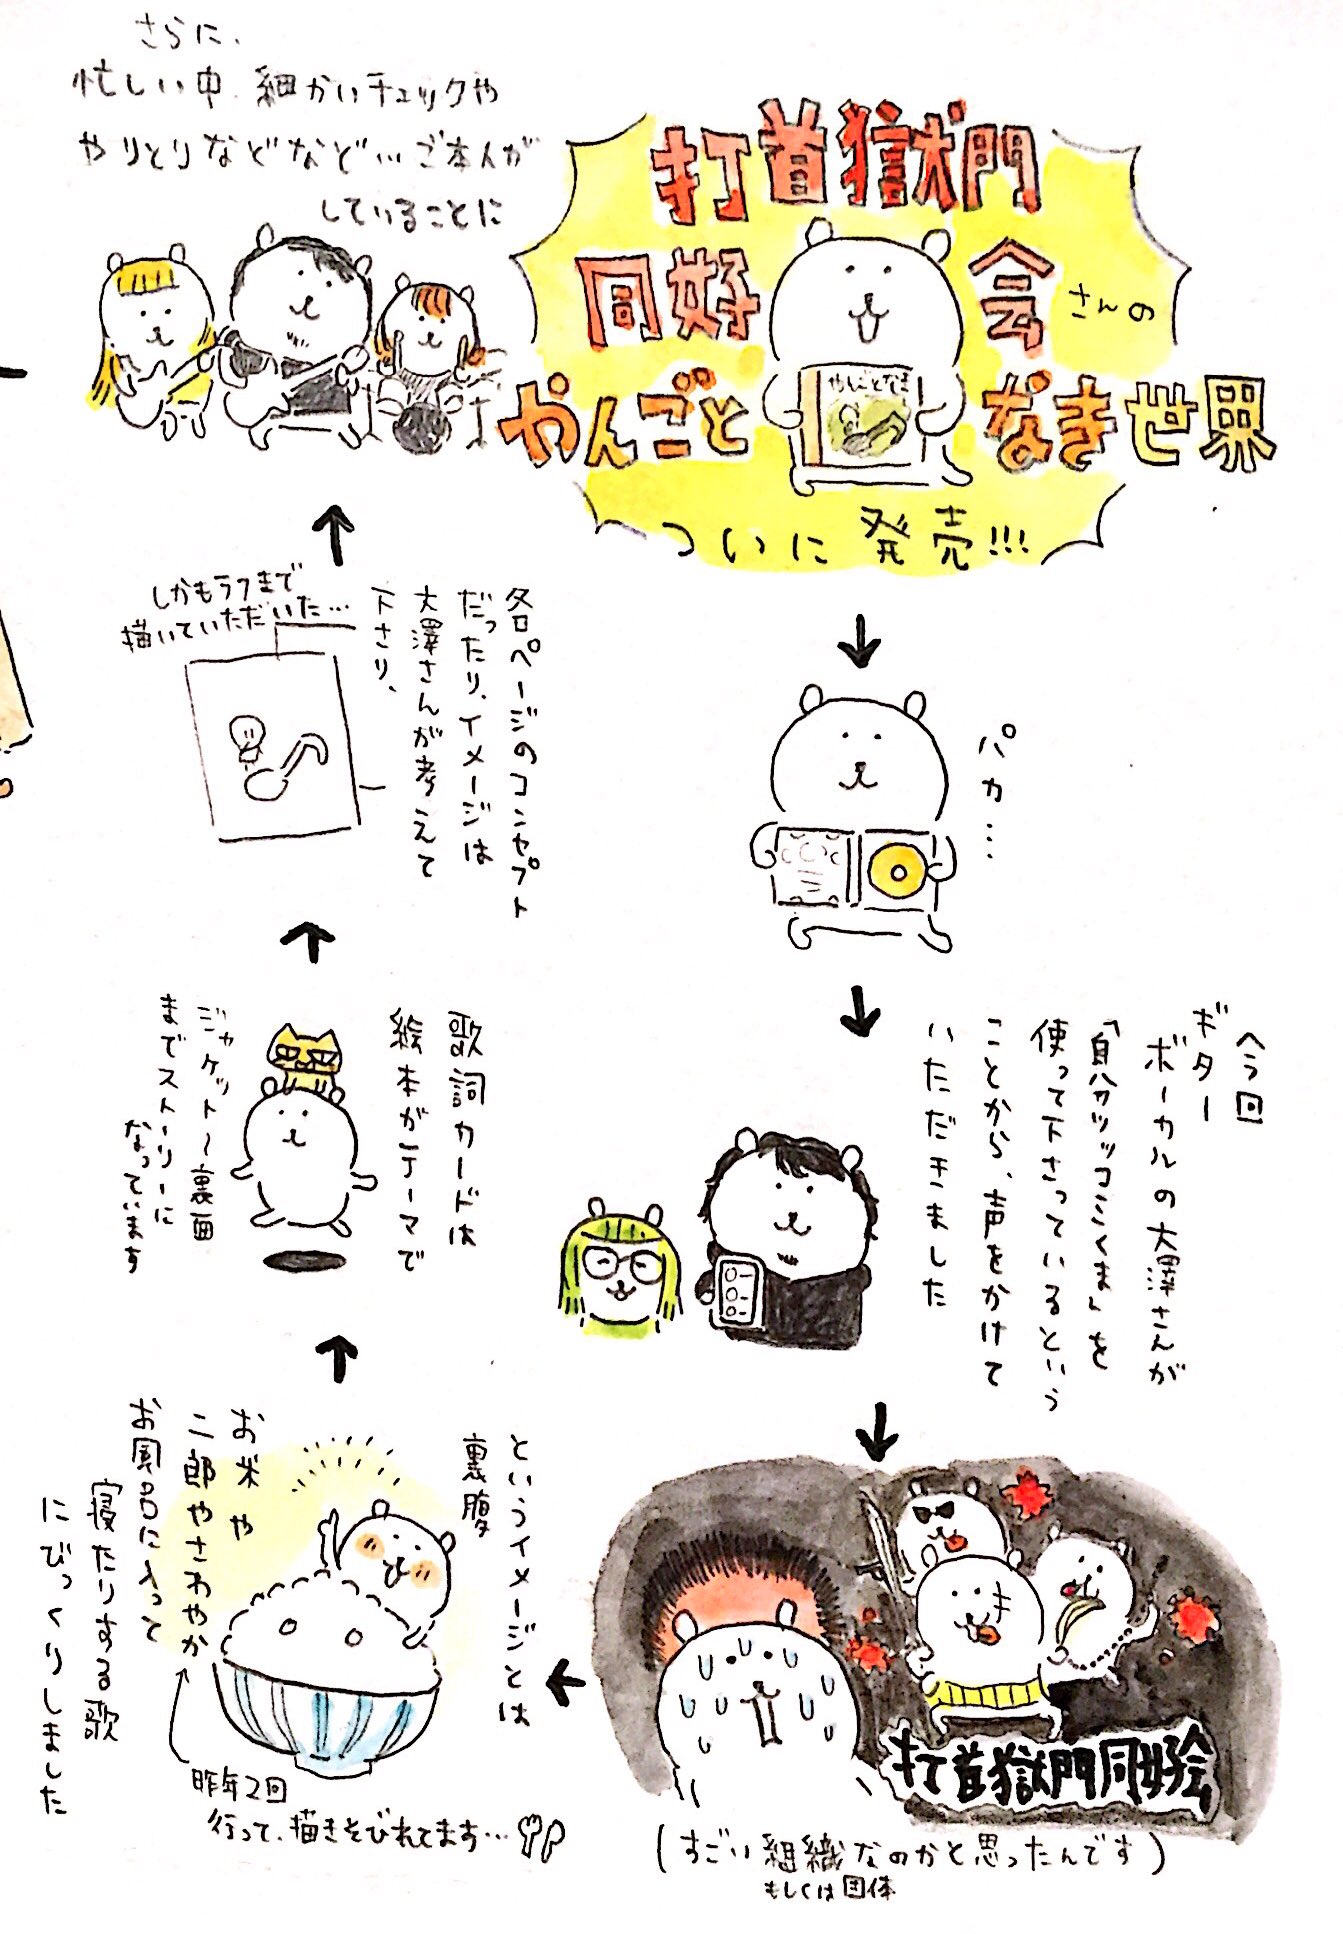 打首獄門
同好会さんの
やんごとなき世界
やんごとなき
ついに発売!!!
パカ…
今回
ギター
ボーカルの大澤さんが
「自分ツッコミくま」を
使って下さっているという
ことから、声をかけて
いただきました
打首獄門同好会
(すごい組織なのかと思ったんです)
もしくは団体
というイメージとは
裏腹
お米や
二郎やさわやか
お風呂に入って
寝たりする歌
にびっくりしました
昨年2回
行って、描きそびれてます…
歌詞カードは
絵本がテーマで
ジャケット〜裏面
までストーリーに
なっています
各ページのコンセプト
だったり、イメージは
大澤さんが考えて
下さり、
しかもラフまで
描いていただいた…
さらに、
忙しい中、細かいチェックや
やりとりなどなど…ご本人が
していることに